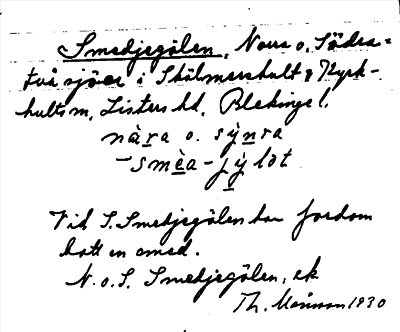 Smedjegölen, Norra o. Södra =
två sjöar i Skälmershult, Kyrk-
hults sn, Listers hd, Blekinge l.
nàra o. sỳnra
- smèa - jỳlǝt
Vid S. Smedjegölen har fordom
haft en smed.
N. o. S. Smedjegölen, ek
Th. Månsson 1930